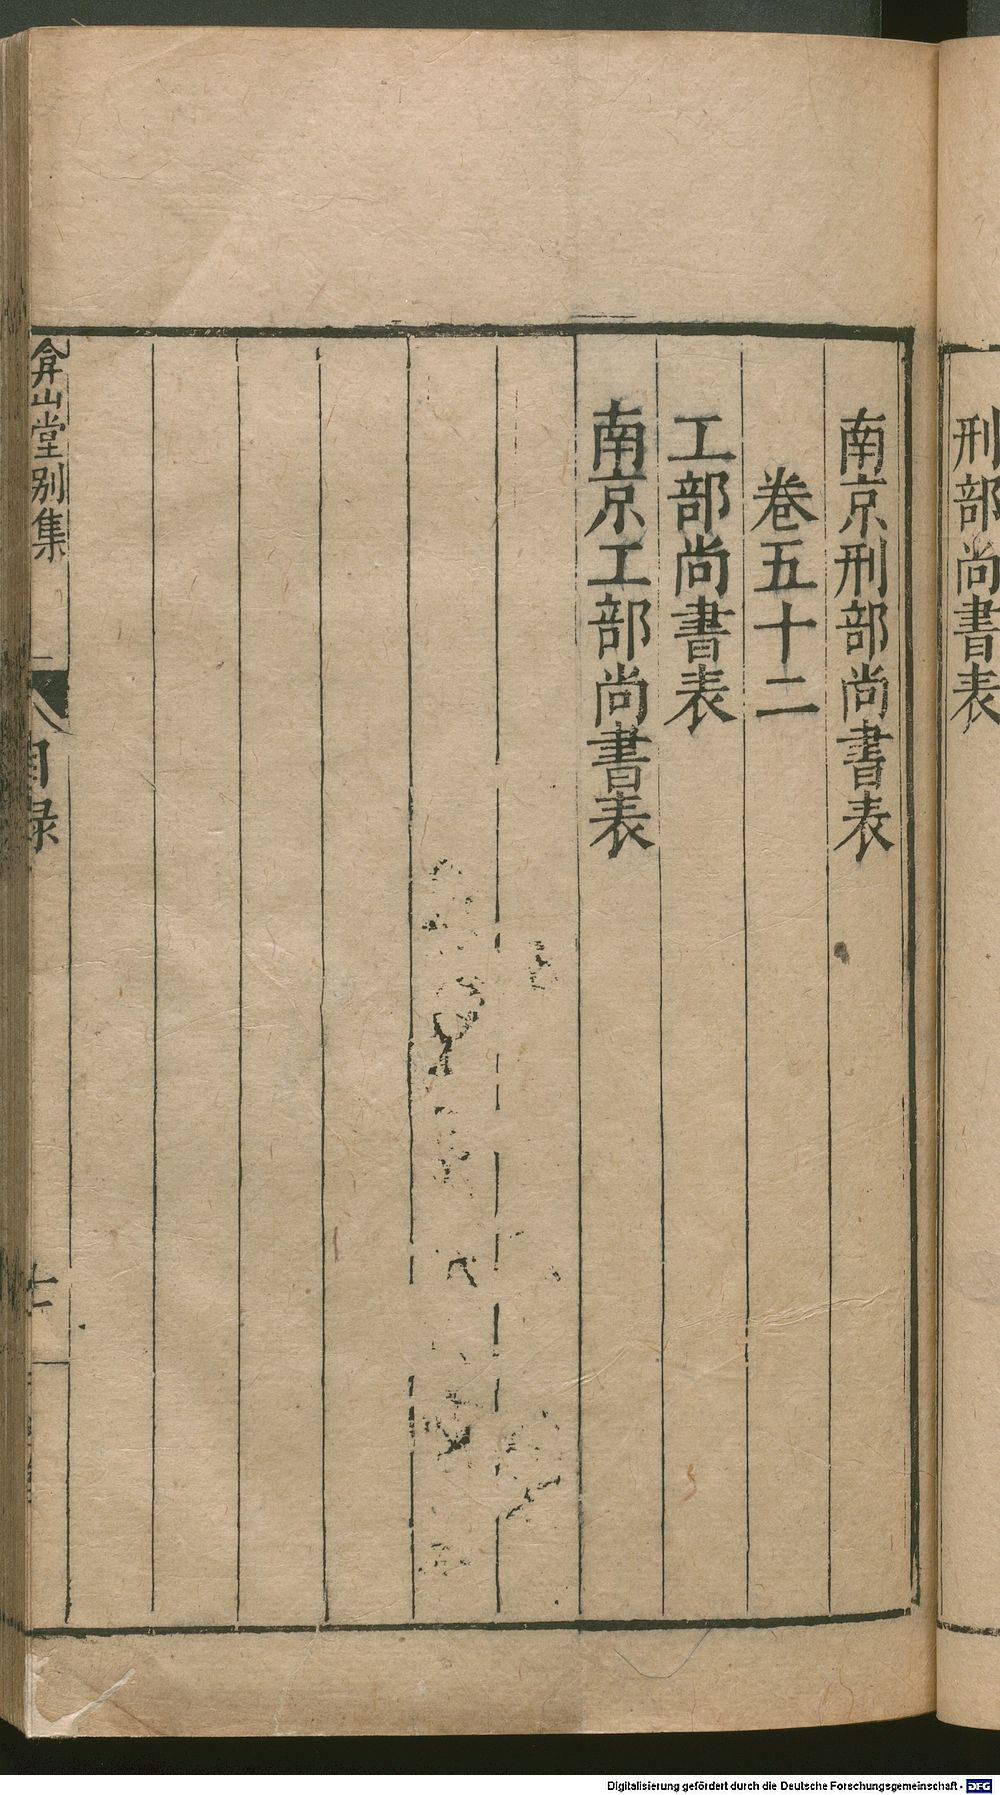 刑部尚書表
南京刑部尚書表
卷五十二
工部尚書表
南京工部尚書表
弇山堂別集
目录
Digitalisierung gefördert durch die Deutsche Forschungsgemeinschaft - DFG